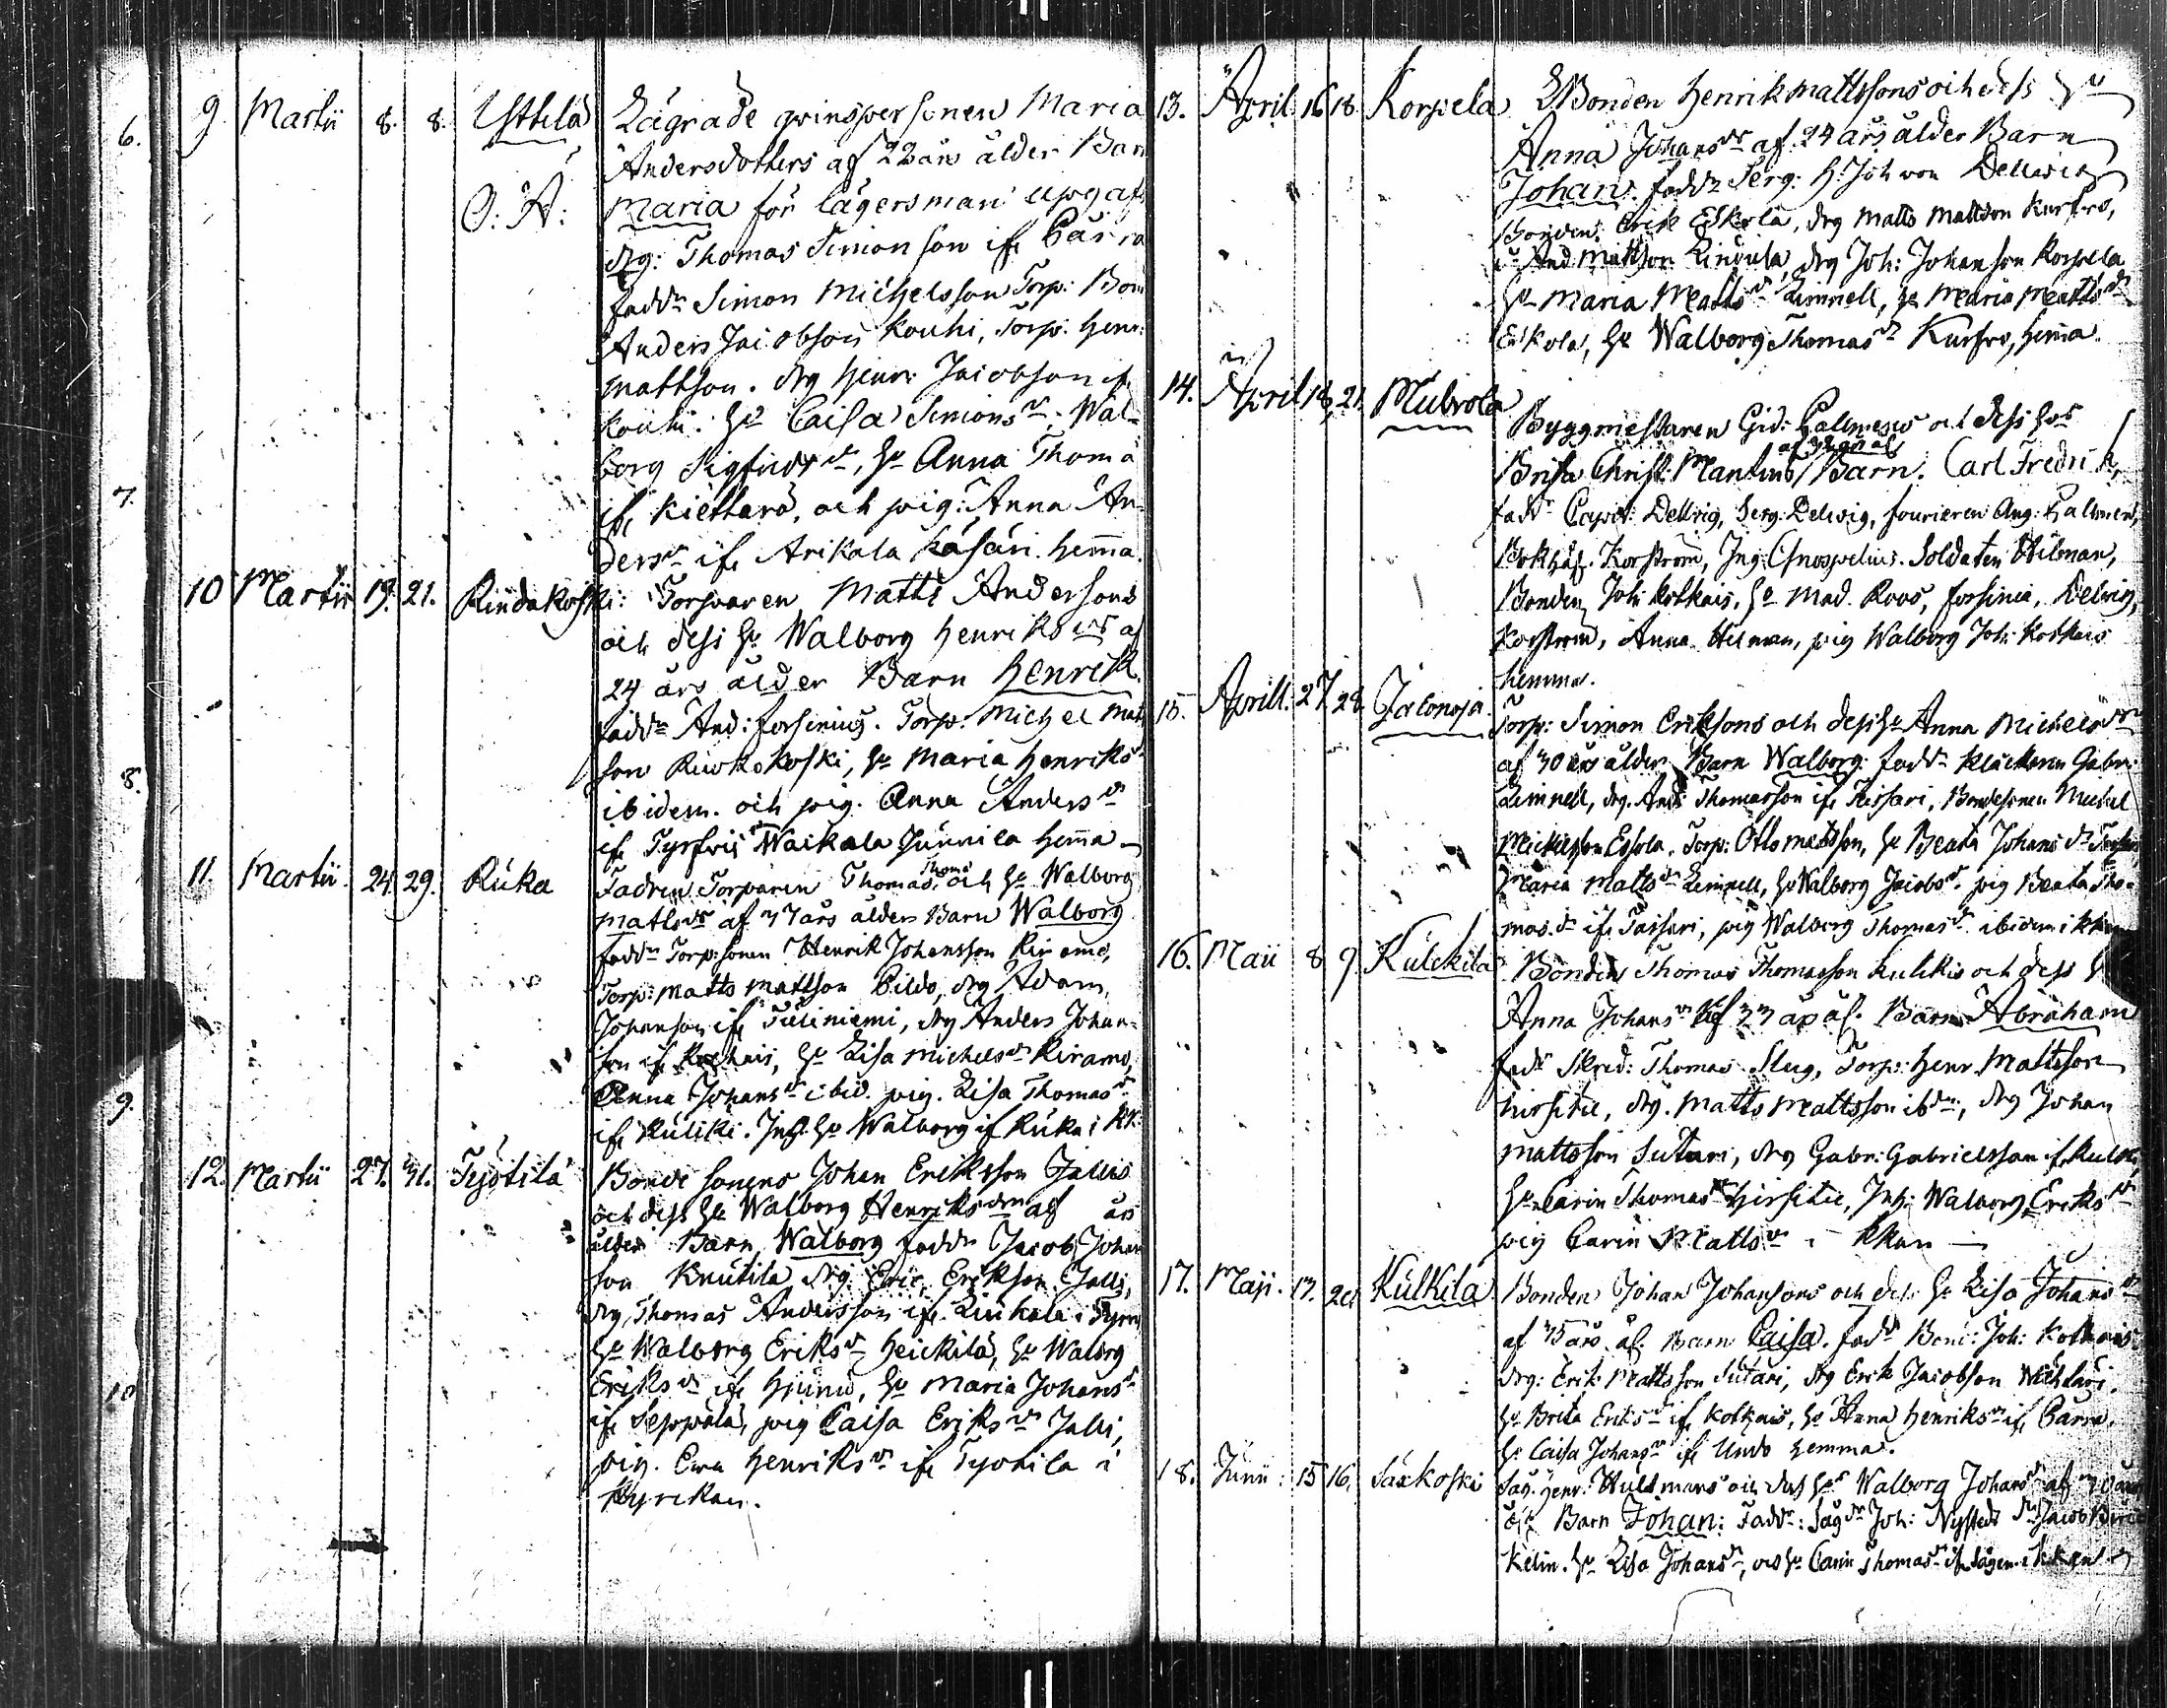 6.
9. Martii 8. 8. Usttila Lägrade qvinspersonen Maria
Andersdotters af 22 års ålder Barn
O. Ä: Maria för lägersman uppgafs
drg: Thomas Simonson if Cärra
fadd. Simon Michelsson Torp: Bon
Anders Jacobson Kouhi, Torp. Henr:
Mattson. drg Henr: Jacobson if
Kouhi. Hu Caisa Simons dr, Wal-
borg Sigfrids dr, Hu Anna Thoma
7.
if Kiettarä, och pig: Anna An-
ders dr if Arikala Kásári. hemma.
10 Martii 19. 21. Rindakoski: Torparen Matts Andersons
och dess Hu Walborg Henriks drs af
24 års ålder Barn Henrik.
fadd. And: Forsinius. Torp: Michel Mats
son Kuokokoski, Hu Maria Henriks
8.
ibidem. och pig. Anna Anders dr
if Tyrfvis Waikala Junnila hemma
11. Martii. 24. 29. Ruka Fadren Torparen Thomas Thoms. och Hu Walborg
Matts drs af 37 års ålder Barn Walborg
fadd. Torp: sonen Henrik Johansson Kiramo,
Torp: Matts Mattson Cildo, drg Adam
Johanson if Tieliniemi, drg Anders Johan-
9.
son if Kothais, Hu Lisa Michels dr Kiramo,
Anna Johans dr ibid. pig. Lisa Thomas dr
if Kuliki. Inh. Hu Walborg if Ruka i Kk.
12. Martii 27. 31. Työtilä Bonde sonens Johan Eriksson Jallis
och dess Hu Walborg Henriks drs af års
ålder Barn Walborg fadd. Jacob Johan
son Knutila drg Eric Erikson Jalli,
drg Thomas Andersson if Liukala i Tyrv
Hu Walborg Eriks dr Heickilä, Hu Walborg
10
Eriks dr if Hjiunu, Hu Maria Johans dr
if Seppälä, pig Caisa Eriks dr Jalli,
pig. Ewa Henriks dr if Tyotila i
Kyrckan.
13. April 16 18. Korpela Bonden Henrik Mattssons och dess Hu
Anna Johans dr af 24 års ålder Barn
Johan. fadd. Serg: H. Joh von Dellwig
Bonden Erik Eskola, drg Matts Mattson Kurfvo,
d. And Mattson Linnula, drg Joh: Johanson Korpela
Hu Maria Matts dr Limnell, Hu Maria Matts dr
Eskola, Hu Walborg Thomas dr Kurfvo, hemma.
14. April 18, 21. Mubrola Byggmestaren Gid: Hallmens och dess Hus
af 32 års al.
Brita Christ: Mantens Barn. Carl Fredrik,
fadd. Capit: Dellvig, Serg: Delwig, fourieren Aug: Hallmen,
Bokhål. Korström, Ing: Gnospelius. Soldaten Hilman,
Bonden Joh: Kotkais, Hu Mad. Roos, Forsinia, Delvig,
Korström, Anna Hilman, pig Walborg Joh: Kotkais
hemma.
15. Aprill. 27 28. Jalonoja. Torp: Simon Eriksons och dess Hu Anna Michels dr
af 30 års ålder Barn Walborg: fadd. Kläckaren Gabr:
Limnell, drg. And: Thomasson if Tassari, Bondesonen Michel
Mickelsson Eskola. Torp: Otto Mattsson, Hu Beata Johans dr
Maria Matts dr Limnell, Hu Walborg Jacobs dr. pig Beata Tho-
mas. dr if Tassari, pig Walborg Thomas dr ibidem i kkan
16. Maii 8 9. Kulckila Bonden Thomas Thomasson Kulikis och dess H
Anna Johans dr af 33 års ål. Barn Abraham
fadd Skred: Thomas Slug, Torp: Henr Mattsson
Hirsitie, drg. Matts Mattsson ibdm, drg Johan
Mattsson Sutari, drg Gabr: Gabrielsson if Kulk,
Hu Carin Thomas dr Hirsitie, Inh: Walborg Eriks dr
pig Carin Matts dr i Kkan
17. Maji. 17. 20. Kulkila Bonden Johan Johansons och dess Hu Lisa Johans dr
af 35 års ål. Barn Caisa. fadd Bond: Joh: Kotkais
drg: Erik Mattsson Sutari, drg Erik Jacobson Wähtari.
Hu Brita Eriks dr if Kotkais, Hu Anna Henriks dr if Cärra.
Hu Caisa Johans dr if Undo hemma.
18. Junii: 15 16. Sáxkoski Såg. Henr: Huldmans och dess Hus Walborg Johans dr af 30 års
ål. Barn Johan: Fadd: Såg Joh: Nystedt Jacob
Kelin. Hu Lisa Johans dr, och Hu Carin Thomas dr if Sågen i Kkan